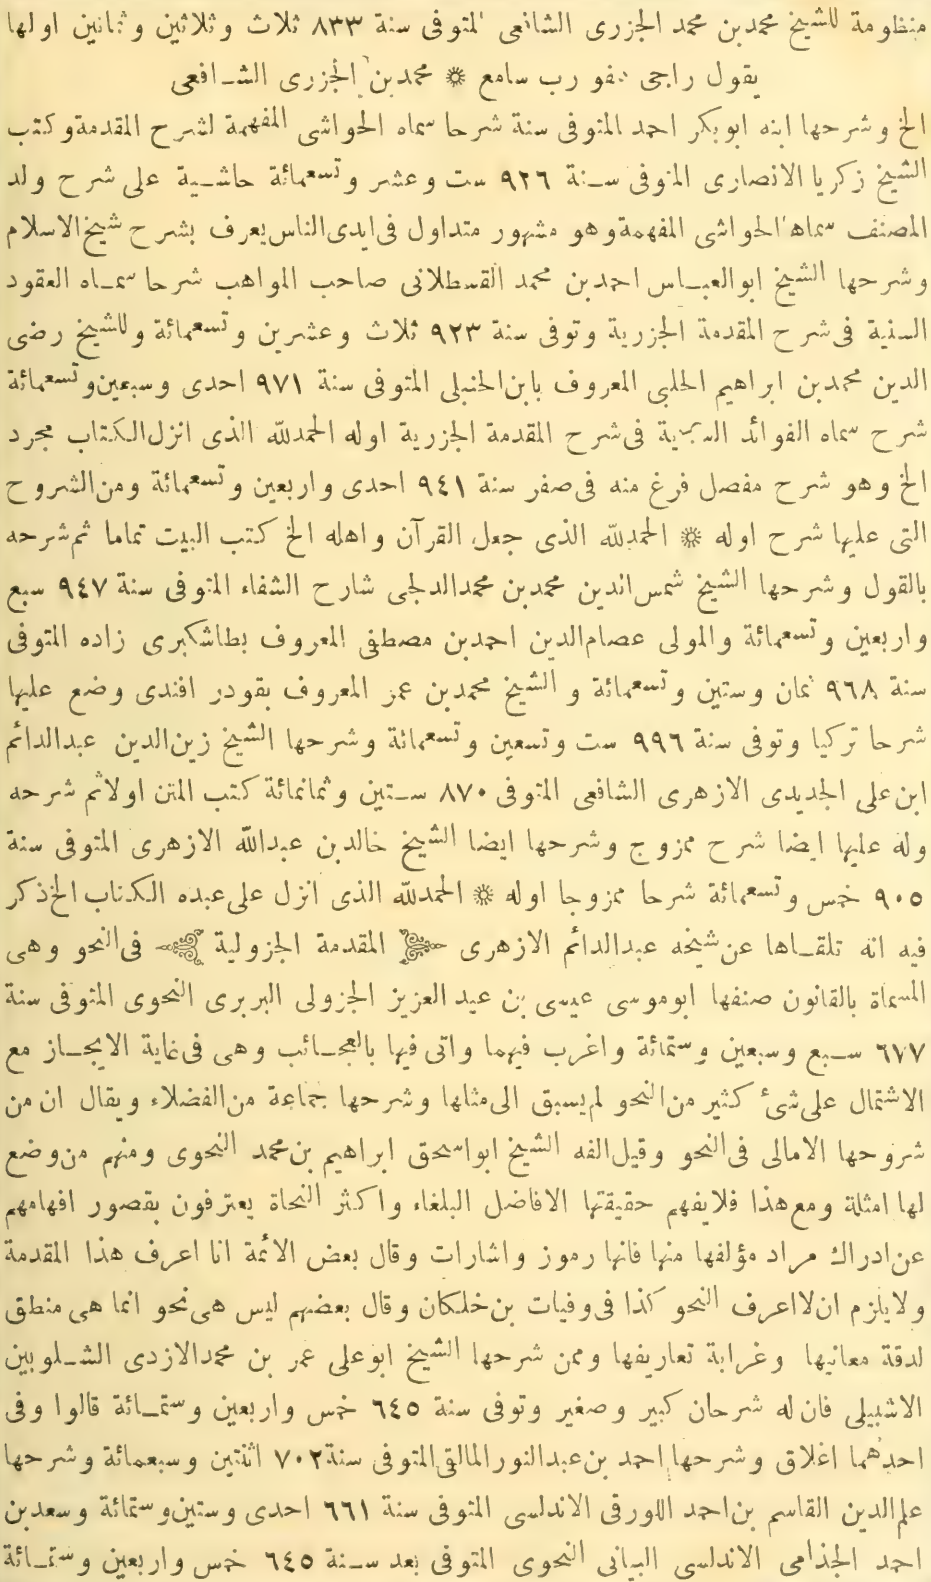 منظومة للشيخ محمدبن محمد الجزرى الشافعى المتوفى سنة ٨٣٣ ثلاث وثلاثين وثمانين اولها
يقول راجى عفو رب سامع ❊ محمدبن الجزرى الشـافعى
الخ وشرحها ابنه ابوبكر احمد المتوفى سنة شرحا سماه الحواشى المفهمة لشرح المقدمة وكتب
الشيخ زكريا الانصارى المتوفى سـنة ٩٢٦ ست وعشر وتسعمائة حاشـية على شرح ولد
المصنف سماه الحواشى المفهمة وهو مشهور متداول فى ايدى الناس يعرف بشرح شيخ الاسلام
وشرحها الشيخ ابوالعبـاس احمدبن محمد القسطلانى صاحب المواهب شرحا سمـاه العقود
السنية فى شرح المقدمة الجزرية وتوفى سنة ٩٢٣ ثلاث وعشرين وتسعمائة وللشيخ رضى
الدين محمدبن ابراهيم الحلبى المعروف بابن الحنبلى المتوفى سنة ٩٧١ احدى وسبعين وتسعمائة
شرح سماه الفوائد السرية فى شرح المقدمة الجزرية اوله الحمدلله الذى انزل الكتاب مجرد
الخ وهو شرح مفصل فرغ منه فى صفر سنة ٩٤١ احدى واربعين وتسعمائة ومن الشروح
التى عليها شرح اوله ❊ الحمدلله الذى جعل القرآن واهله الخ كتب البيت تماما ثم شرحه
بالقول وشرحها الشيخ شمس الدين محمدبن محمد الدلجى شارح الشفاء المتوفى سنة ٩٤٧ سبع
واربعين وتسعمائة والمولى عصام الدين احمدبن مصطفى المعروف بطاشكبرى زاده المتوفى
سنة ٩٦٨ ثمان وستين وتسعمائة و الشيخ محمدبن عمر المعروف بقودر افندى وضع عليها
شرحا تركيا وتوفى سنة ٩٩٦ ست وتسعين وتسعمائة وشرحها الشيخ زين الدين عبدالدائم
ابن على الجديدى الازهرى الشافعى المتوفى ٨٧٠ سـتين وثمانمائة كتب المتن اولا ثم شرحه
وله عليها ايضا شرح ممزوج وشرحها ايضا الشيخ خالدبن عبدالله الازهرى المتوفى سنة
٩٠٥ خمس وتسعمائة شرحا ممزوجا اوله ❊ الحمدلله الذى انزل على عبده الكتاب الخ ذكر
فيه انه تلقـاها عن شيخه عبدالدائم الازهرى المقدمة الجزولية فى النحو وهى
المسماة بالقانون صنفها ابوموسى عيسى بن عبد العزيز الجزولى البربرى النحوى المتوفى سنة
٦٧٧ سـبع وسبعين وستمائة واغرب فيهما واتى فيها بالعجـائب وهى فى غاية الايجـاز مع
الاشتمال على شئ كثير من النحو لم يسبق الى مثلها وشرحها جماعة من الفضلاء ويقال ان من
شروحها الامالى فى النحو وقيل الفه الشيخ ابواسحق ابراهيم بن محمد النحوى ومنهم من وضع
لها امثلة ومع هذا فلايفهم حقيقتها الافاضل البلغاء واكثر النحاة يعترفون بقصور افهامهم
عن ادراك مراد مؤلفها منها فانها رموز واشارات وقال بعض الائمة انا اعرف هذا المقدمة
ولايلزم ان لااعرف النحو كذا فى وفيات بن خلكان وقال بعضهم ليس هى نحو انما هى منطق
لدقة معانيها وغرابة تعاريفها وممن شرحها الشيخ ابوعلى عمر بن محمد الازدى الشـلوبين
الاشبيلى فان له شرحان كبير وصغير وتوفى سنة ٦٤٥ خمس واربعين وستمـائة قالوا وفى
احدهما اغلاق وشرحها احمد بن عبدالنور المالقى المتوفى سنة ٧٠٢ اثنتين وسبعمائة وشرحها
علم الدين القاسم بن احمد اللورقى الاندلسى المتوفى سنة ٦٦١ احدى وستين وستمائة وسعدبن
احمد الجذامى الاندلسى البيانى النحوى المتوفى بعد سـنة ٦٤٥ خمس واربعين وستمـائة